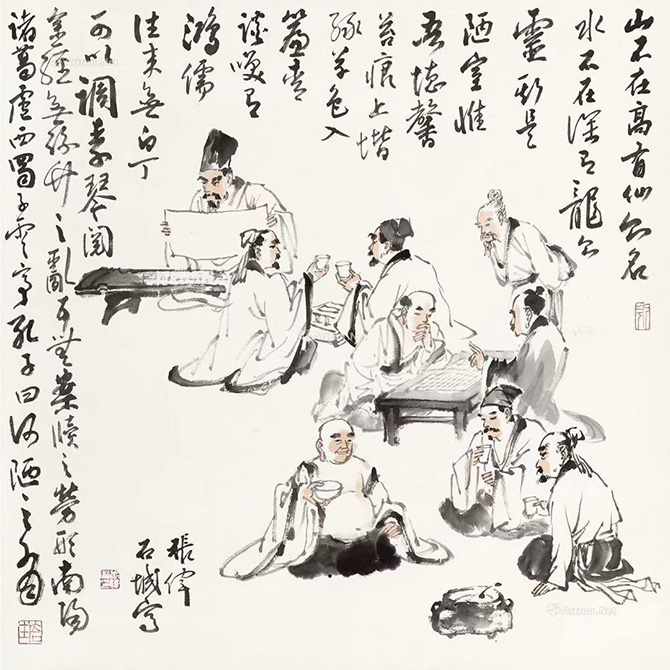 山不在高有仙则名
水不在深有龍则
靈斯是
陋室惟
吾德馨
苔痕上堦
綠草色入
簾青
談笑有
鴻儒
往来無白丁
可以調素琴閱
金經無絲竹之亂耳無案牘之勞形南陽
諸葛廬西蜀子雲亭孔子曰何陋之有
張偉
石城寫
Artron.Net